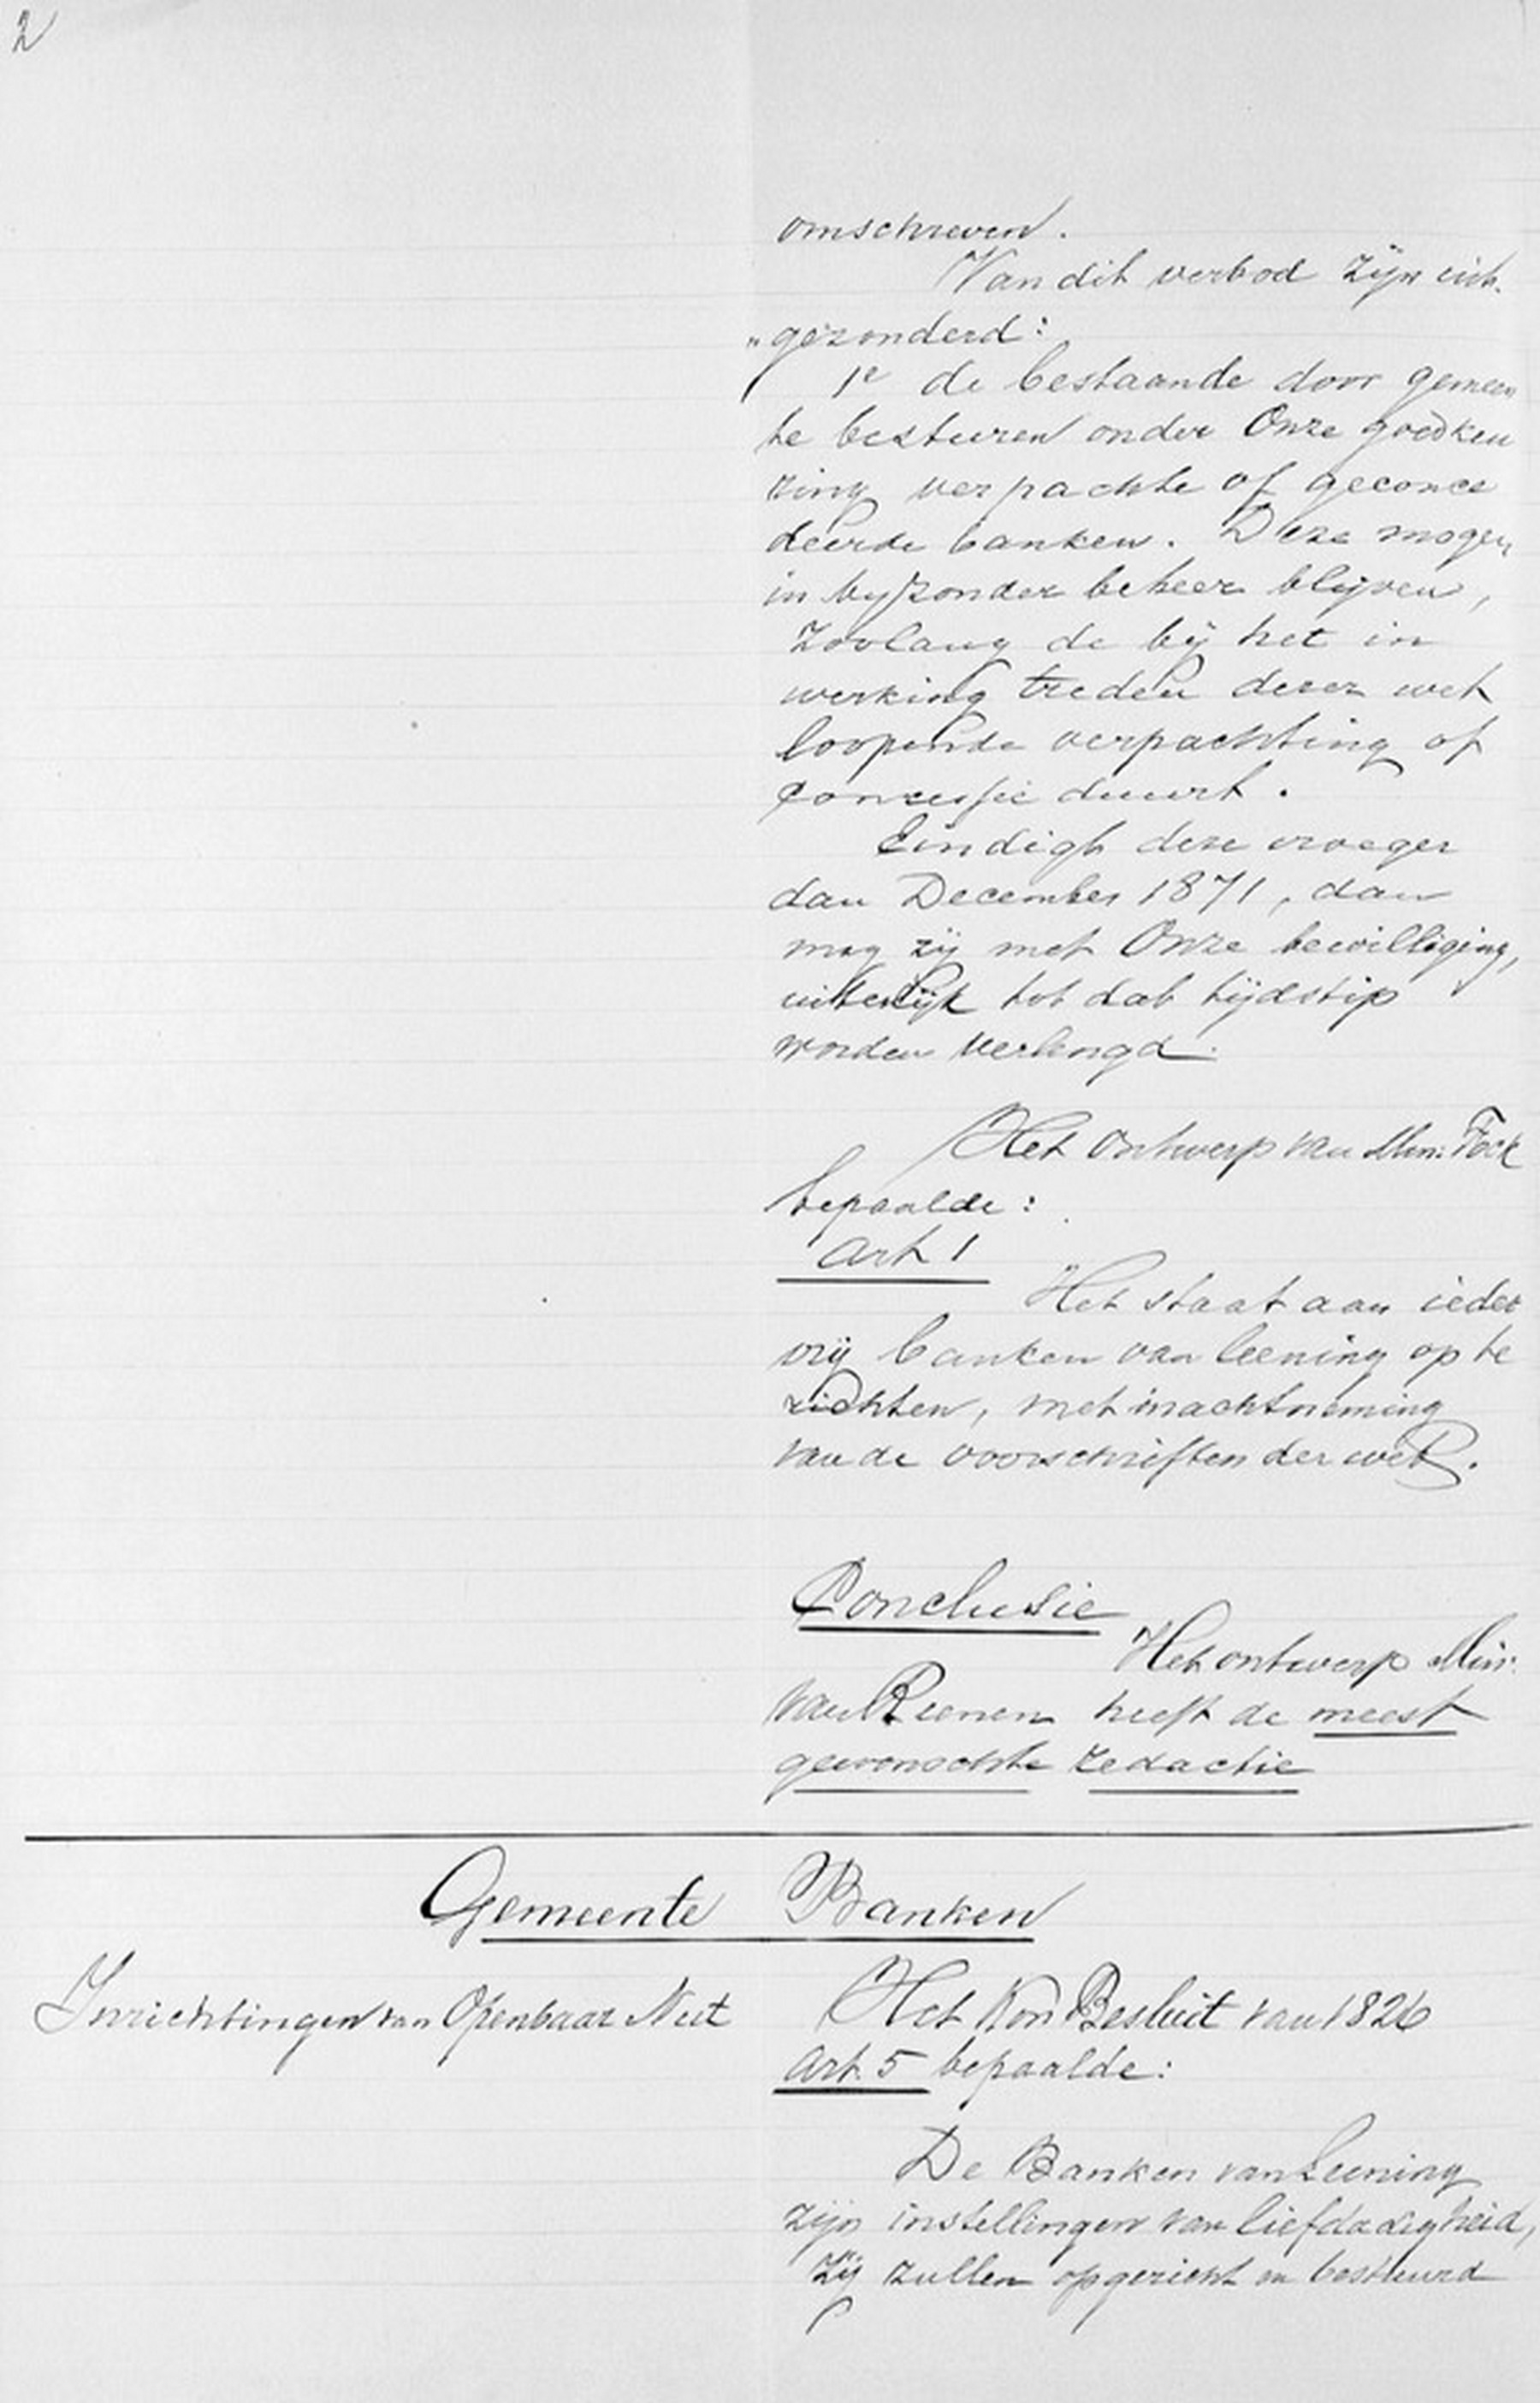 2
omschreven.
Van dit verbod zijn uit-
„gezonderd:
1e de bestaande door gemeen
te besturen onder Onze goedkeu
ring verpachte of geconce
deerde banken. Deze mogen
in byzonder beheer blijven,
zoolang de bij het in
werking treden dezer wet
loopende verpachting of
Concessie duurt.
Eindigt deze vroeger
dan December 1871, dan
mag zij met Onze bewilliging,
uiterlijk tot dat tijdstip
worden verlengd.
Het ontwerp van Min: Fock
bepaalde:
Art 1
Het staat aan ieder
vrij banken van leening op te
richten, met inachtneming
van de voorschriften der wet.
Conclusie
Het ontwerp Min:
van Reenen heeft de meest
gewenschte redactie
Gemeente Banken
Inrichtingen van Openbaar Nut
Het Kon Besluit van 1826
Art. 5 bepaalde:
De Banken van Leening
zijn instellingen van liefdadigheid,
Zij zullen opgericht en bestuurd